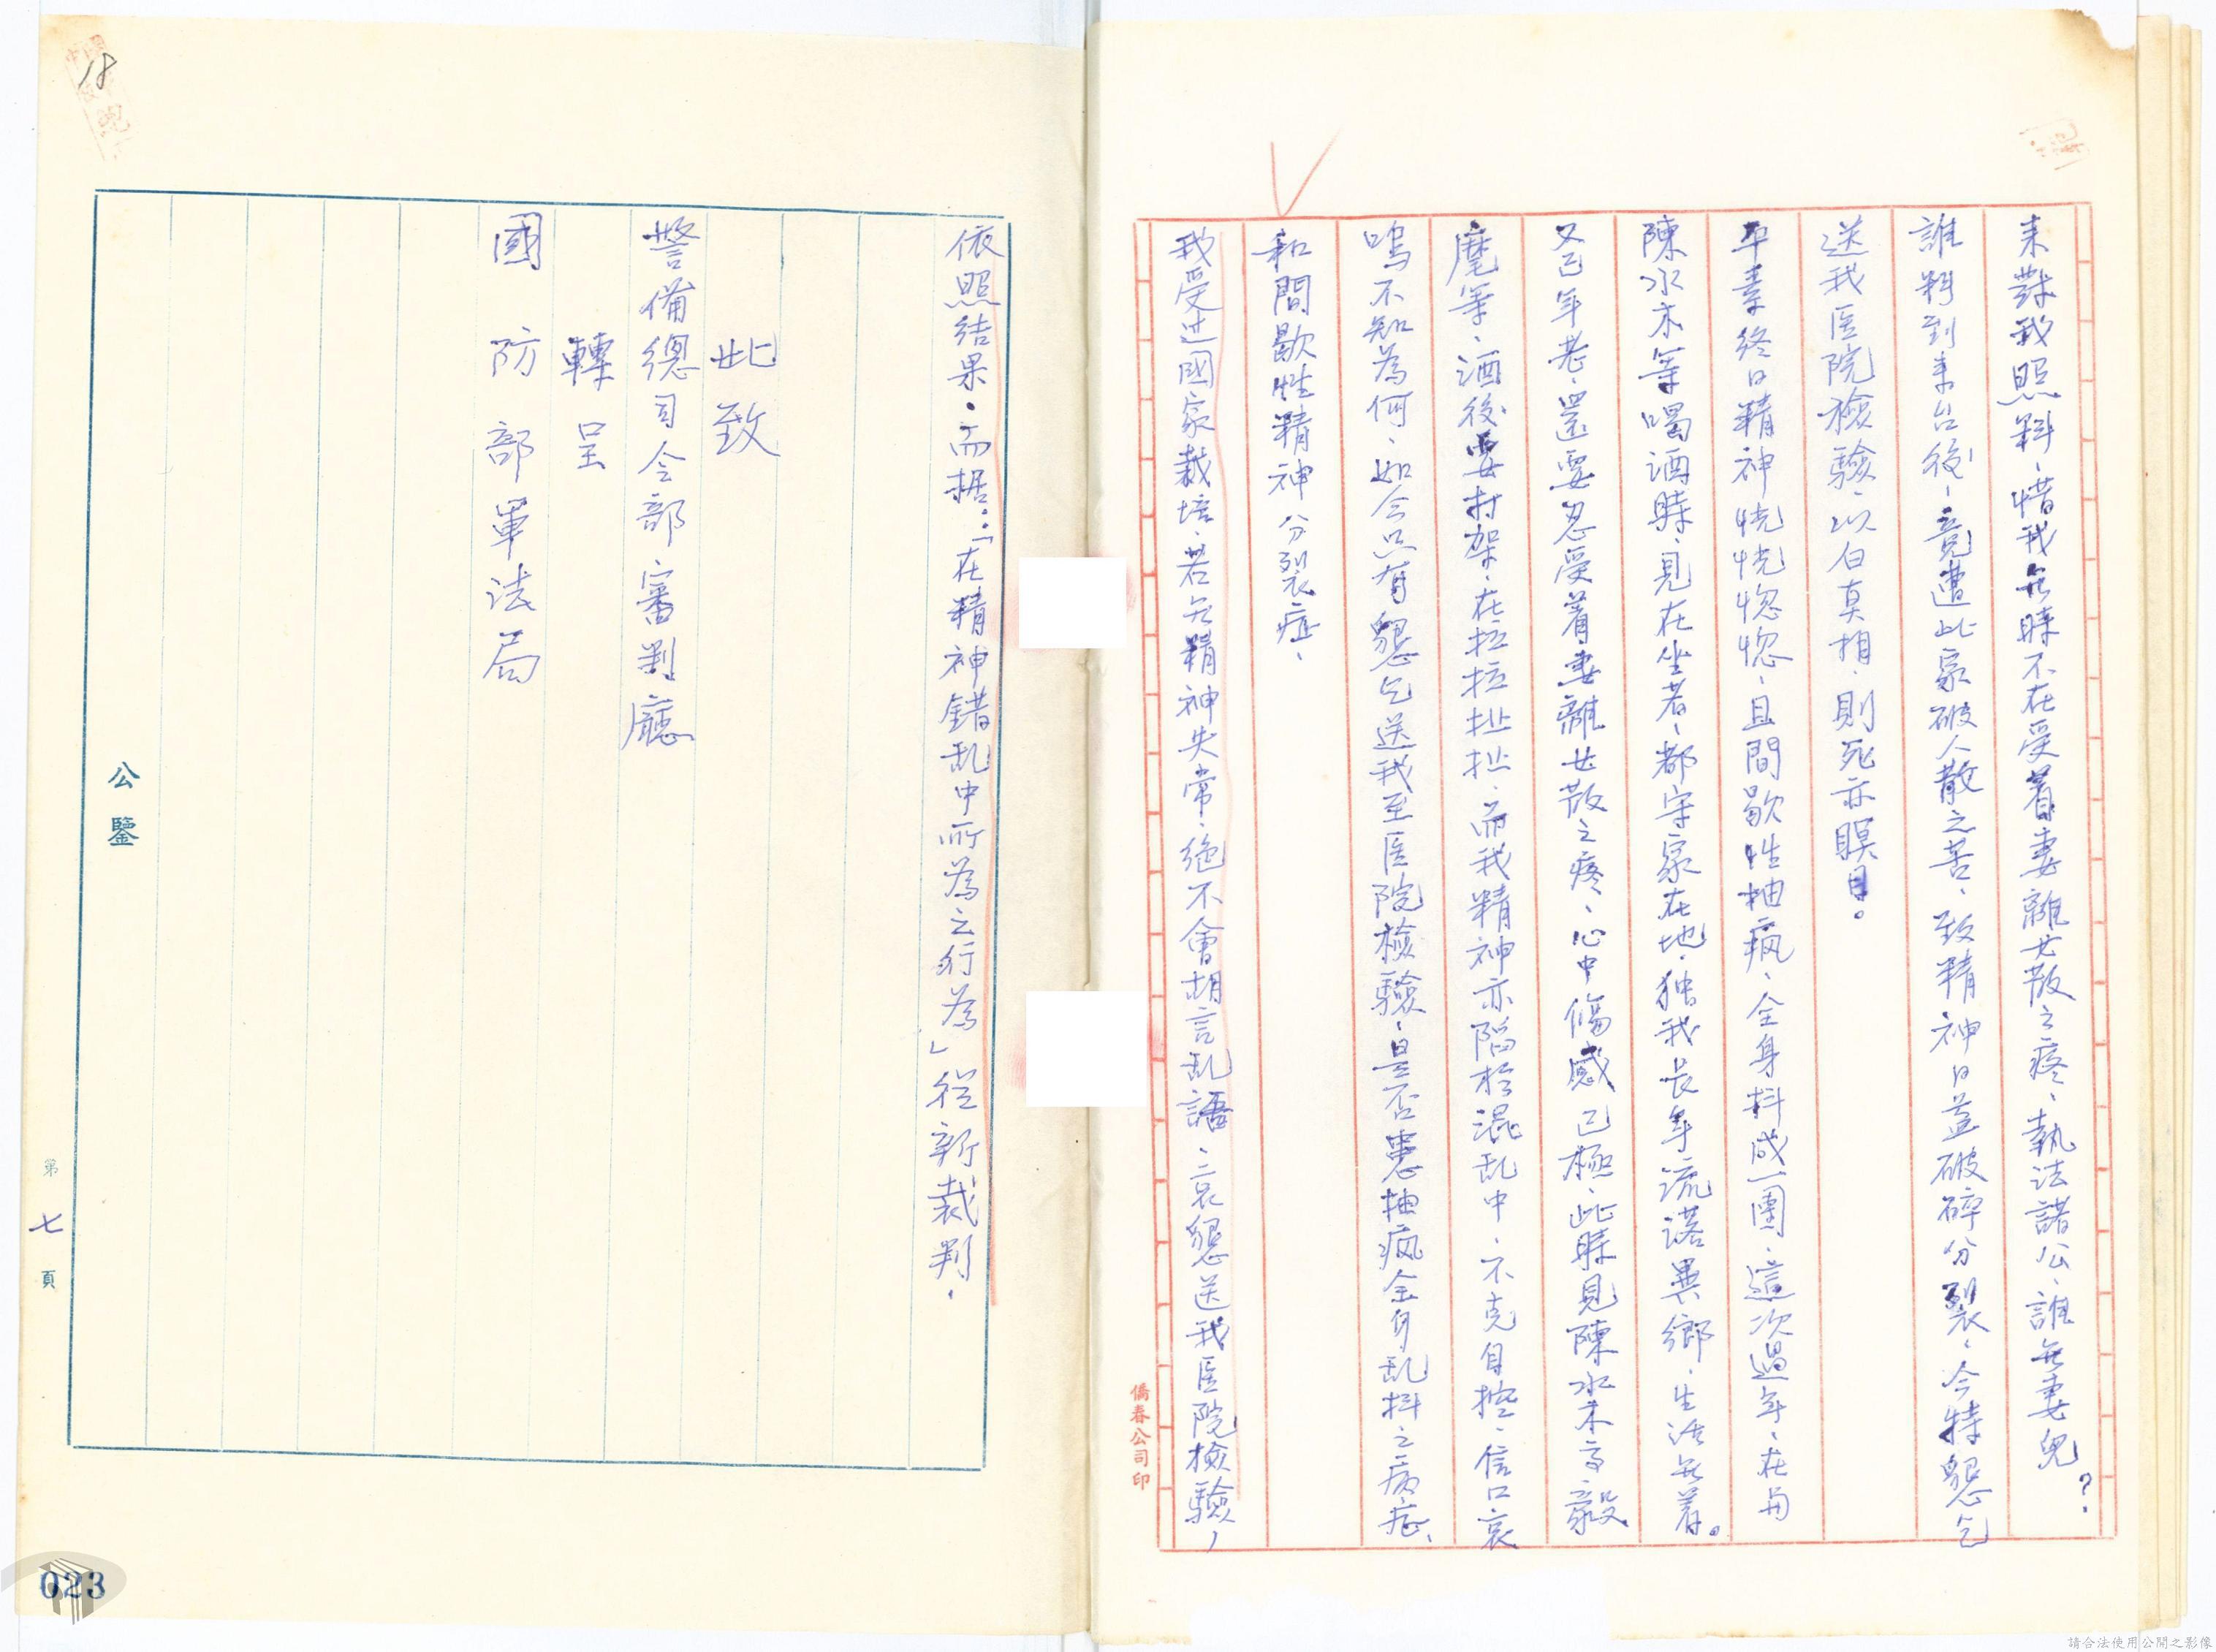 来替我照料、惜我無時不在受着妻離女散之疼、執法諸公、誰無妻兒?
誰料到来台後、竟遭此家破人散之苦、致精神日益破碎分裂、今特懇乞
送我医院檢驗、以白真相、則死亦瞑目。
平素終日精神恍恍惚惚、且間歇性抽疯、全身抖成一團、這次過年、在与
陳水木等喝酒時、見在坐者、都守家在地、独我長年流落異鄉、生活無着。
又已年老、還要忍受着妻離女散之疼、心中傷感已極、此時見陳水木高毅
麾等、酒後要打架、在拉拉扯扯、而我精神亦陷於混乱中、不克自控、信口哀
鳴不知為何、如今只有懇乞送我至医院檢驗、是否患抽疯全身乱抖之病症、
和間歇性精神分裂症、
我受过國家栽培、若无精神失常、絕不會胡言乱語、哀懇送我医院檢驗,
僑春公司印
依照結果、而据:「在精神錯乱中所為之行為」從新裁判、
此致
警備總司令部審判廳
轉呈
國防部軍法局
公鑒
第七頁
18
023
請合法使用公開之影像